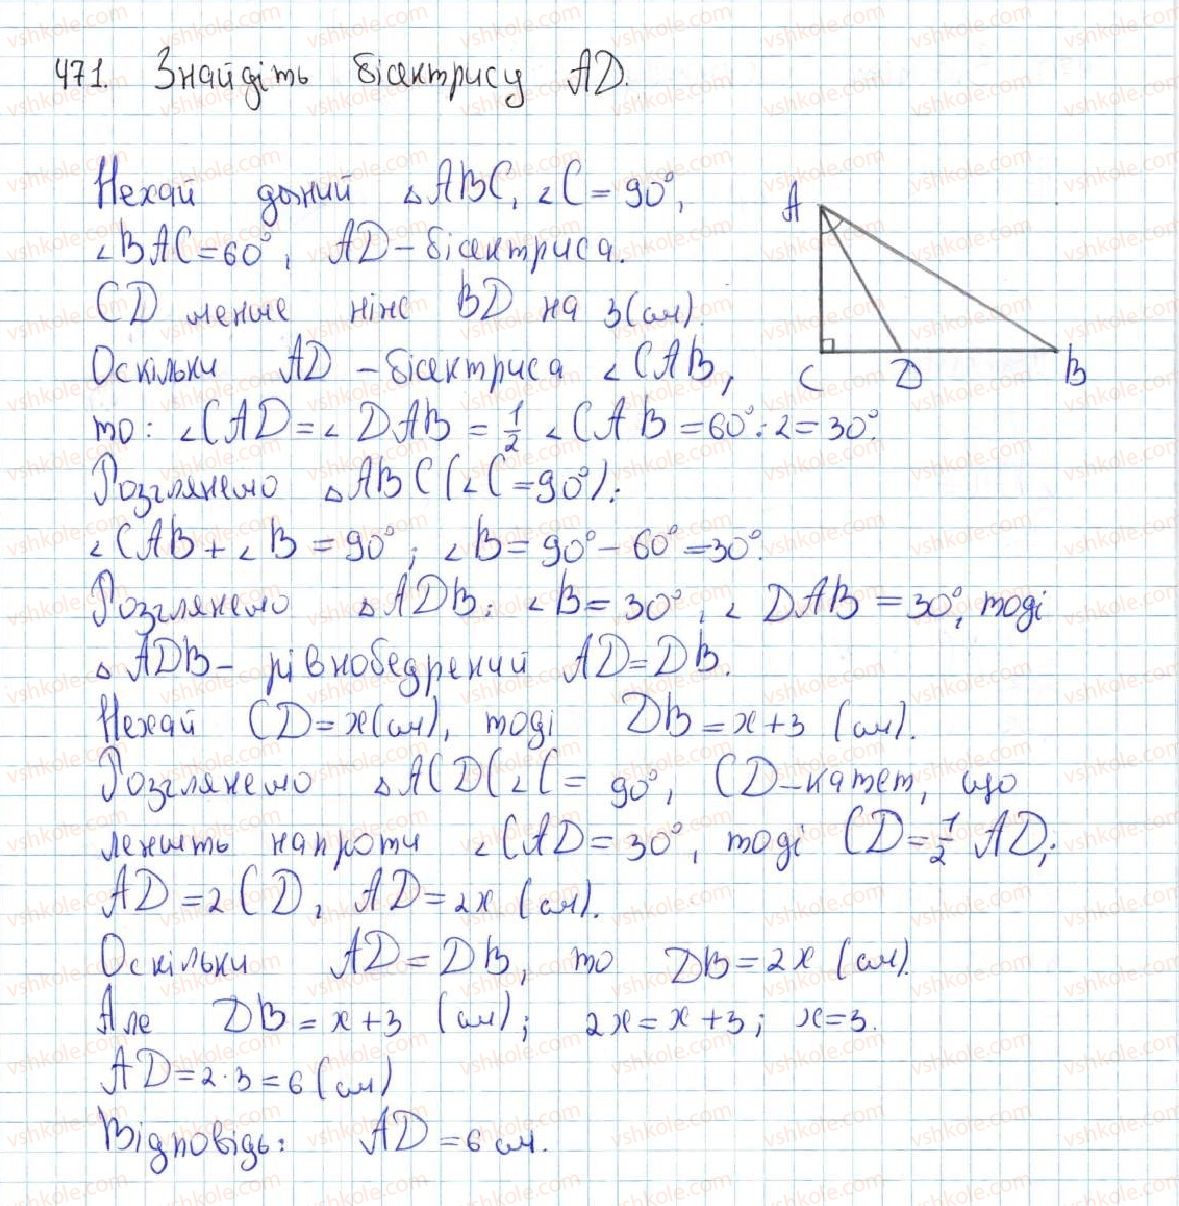 471. Знайдіть бісектрису AD.
Нехай даний △ABC, ∠C = 90°,
∠BAC = 60°, AD – бісектриса.
CD менше ніж BD на 3 (см).
Оскільки AD – бісектриса ∠CAB,
то: ∠CAD = ∠DAB = 1/2 ∠CAB = 60° : 2 = 30°.
Розглянемо △ABC (∠C = 90°):
∠CAB + ∠B = 90°; ∠B = 90° – 60° = 30°.
Розглянемо △ADB: ∠B = 30°, ∠DAB = 30°, тоді
△ADB – рівнобедрений AD = DB.
Нехай CD = x (см), тоді DB = x + 3 (см).
Розглянемо △ACD (∠C = 90°, CD – катет, що
лежить напроти ∠CAD = 30°, тоді CD = 1/2 AD;
AD = 2CD, AD = 2x (см).
Оскільки AD = DB, то DB = 2x (см).
Але DB = x + 3 (см); 2x = x + 3; x = 3.
AD = 2 · 3 = 6 (см)
Відповідь: AD = 6 см.
A
C
D
B
vshkole.com